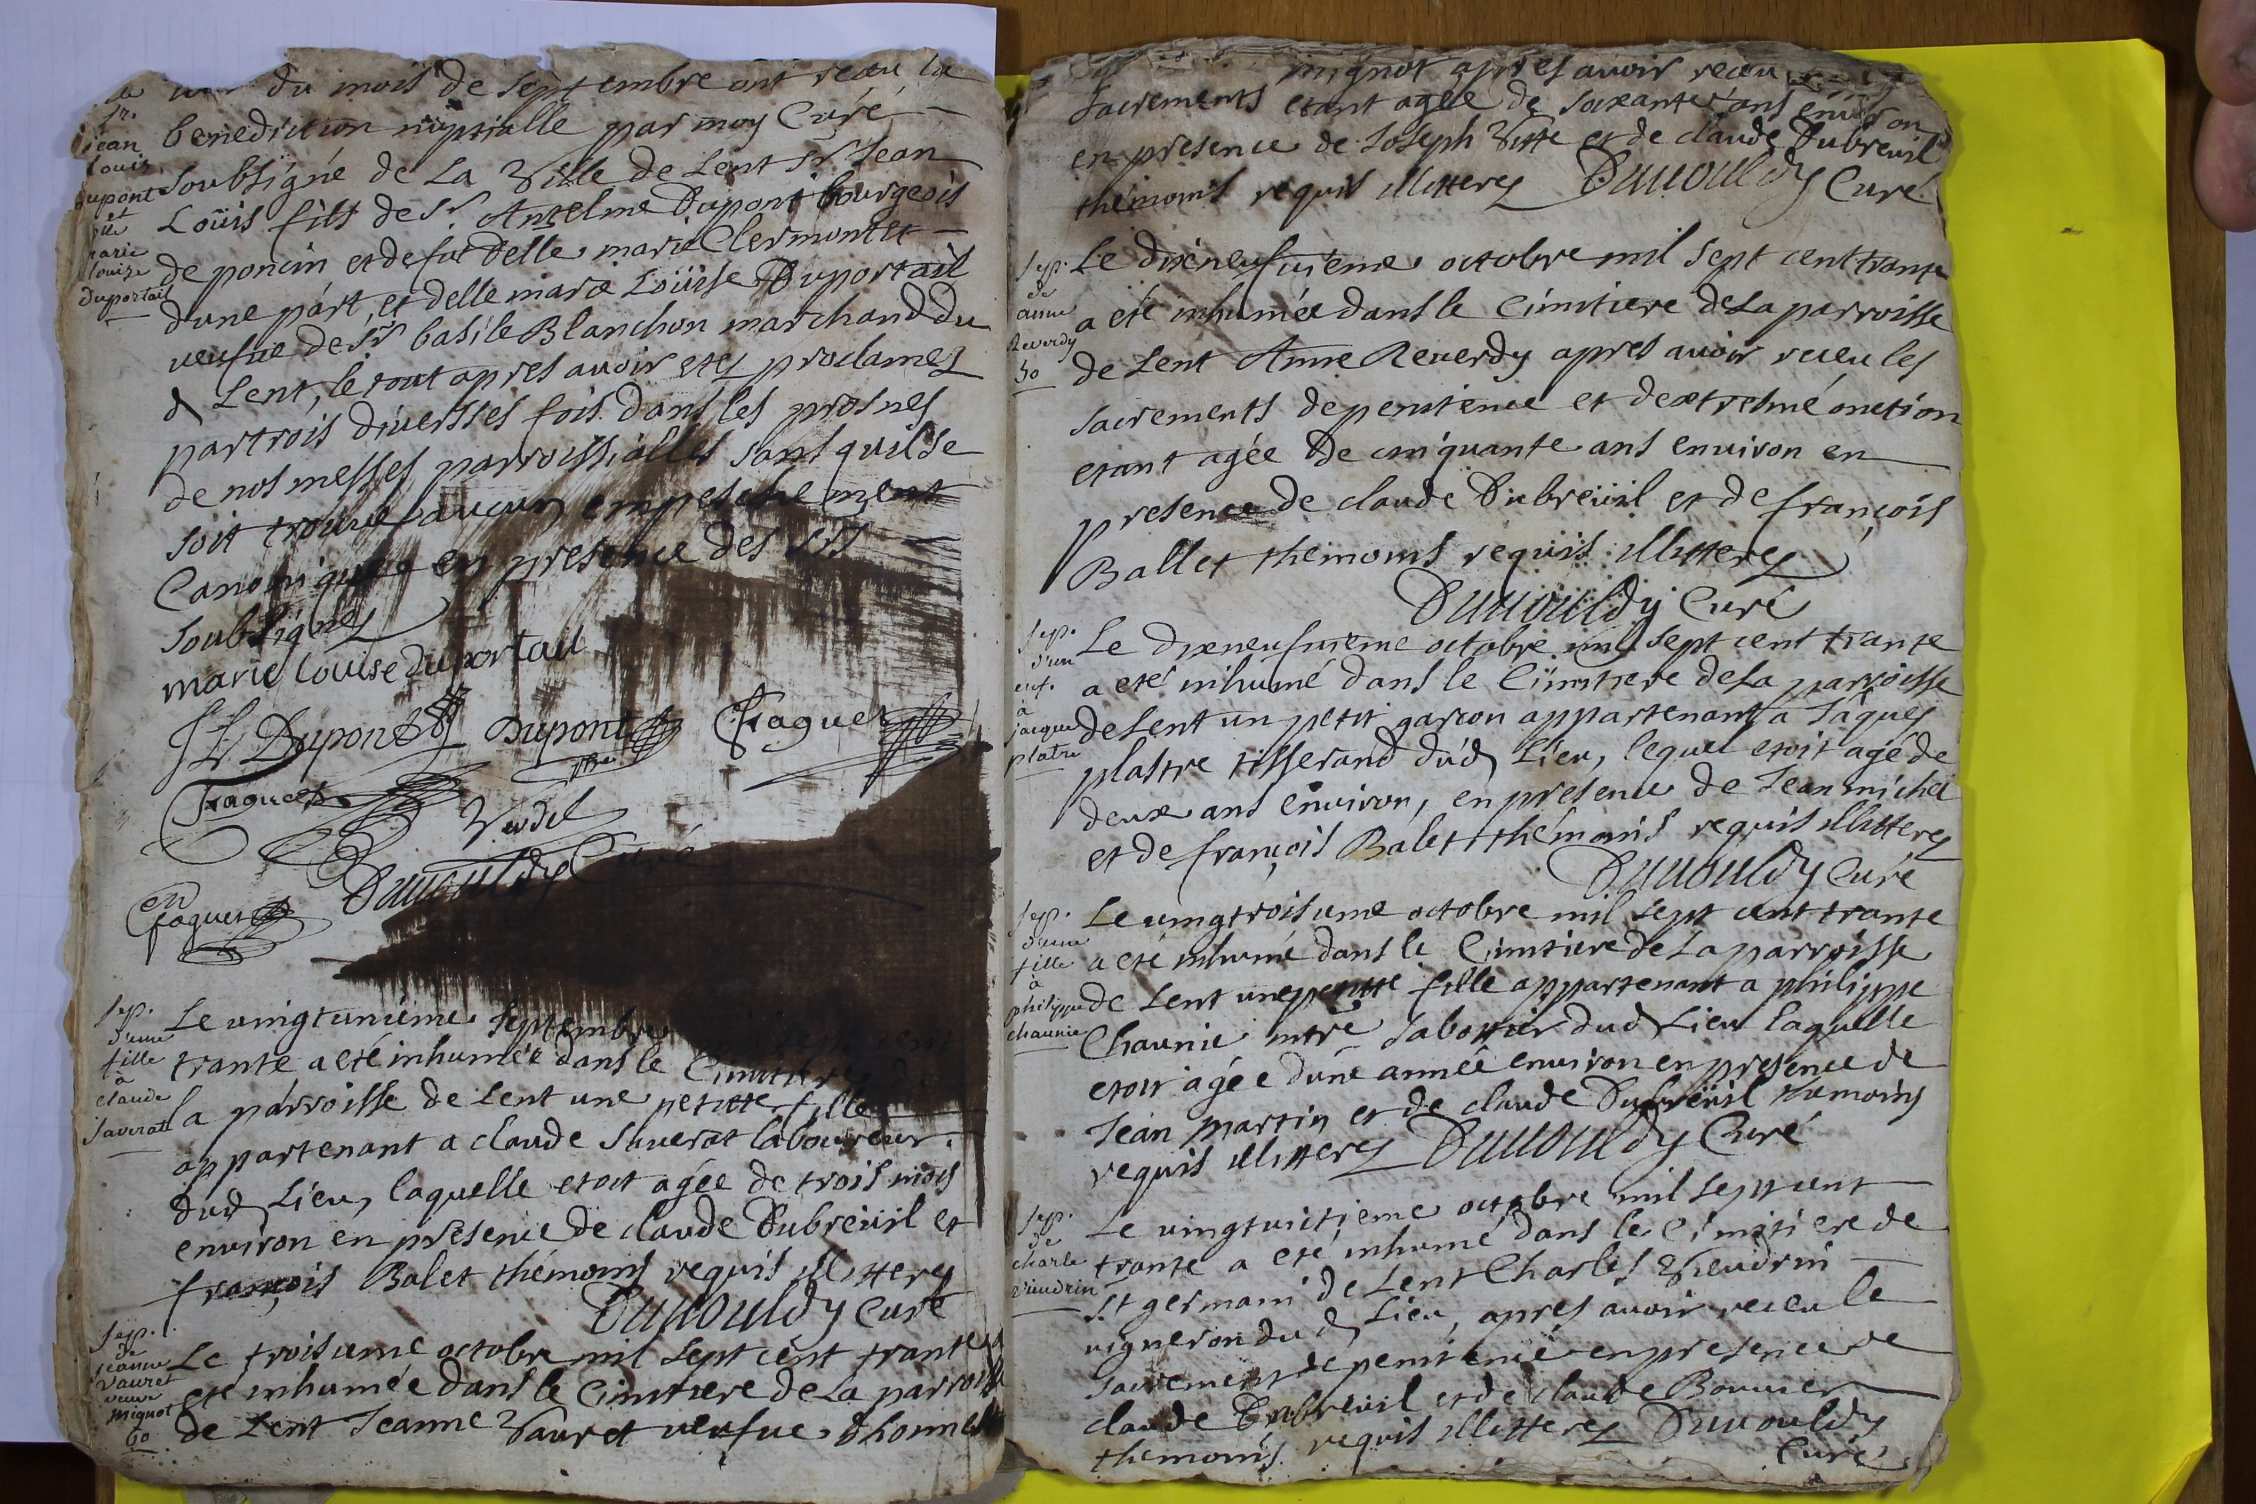 du mois de septembre ont receu la
benediction nuptialle par moy Curé
soubsigné de La Ville de Lent Sr Jean
Loüis fils de Sr Anselme Dupont bourgeois
de poncin et de fut Delle marie Clermontet
dune part, et delle marie Loüise Duportail
veufue de Sr basile Blanchon marchand du
d Lent, le tout apres avoir etez proclamez
par trois diversses fois dans les prosnes
de nos messes parroissialles sans quil se
soit trouué aucun empeschement
Canonique en presence des Srs
soubsignez
marie louise duportail
JL Dupont Dupont Faguet
ptre
Faguet
Vudel
Duuouldy Curé
faguet
sr.
jean
louis
dupont
et
dlle
marie
louize
duportail
sep.
d'une
fille
a
claude
saverat
Le vingtunième septembre
trante a eté inhumée dans le Cimitiere de
la parroisse de Lent une petitte fille
appartenant a claude Sauerat laboureur
dud Lieu, laquelle etoit agée de trois mois
environ en présence de claude Dubreüil et
françois Balet thémoins requis illitterez
Duuouldy Curé
sep.
de
jeanne
vauret
veuve
mignot
60
Le troisieme octobre mil sept cent trante a
eté inhumée dans le Cimitiere de La parroisse
de Lent Jeanne Vauret veufue dhonneste
mignot apres avoir receu
sacrements etant agée de soixante ans environ
en presence de Joseph Vitte et de claude Dubreuil
themoins requis illitterez Duuouldy Curé
sep.
de
anne
Reverdy
50
Le dixneufuieme octobre mil sept cent trante
a eté inhumée dans le Cimitiere de La parroisse
de Lent Anne Reuerdy apres avoir receu les
sacrements de penitence et dextresme onction
etant agée de cinquante ans environ en
presence de claude Dubreüil et de françois
Ballet themoins requis illitterez
Duuouldy Curé
sep.
d'un
enf.
a
jacque
platre
Le dixneufuieme octobre mil sept cent trante
a eté inhumé dans le Cimitiere de La parroisse
de Lent un petit garcon appartenant a Jâques
plastre tisserand dud Lieu, lequel etoit agé de
deux ans environ, en presence de Jean michel
et de françois Balet thémoins requis illitterez
Duuouldy Curé
sep.
d'une
fille
a
philippe
chaunie
Le vingtroisieme octobre mil sept cent trante
a eté inhumé dans le Cimitiere de La parroisse
de Lent une petitte fille appartenant a philippe
Chaunie mtre sabottier dud Lieu laquelle
etoit agée dune année environ en presence de
Jean Martin et de claude Dubreüil themoins
requis illitterez Duuouldy Curé
sep.
de
charle
Vieudrin
Le vingtuictieme octobre mil sept cent
trante a eté inhumé dans le Cimitiere de
St germain de Lent Charles Vieudrin
vigneron du d Lieu, apres avoir receu le
sacrement de penitence en presence de
claude Dubreuil et de claude Bouuier
themoins requis illitterez Duuouldy
Curé